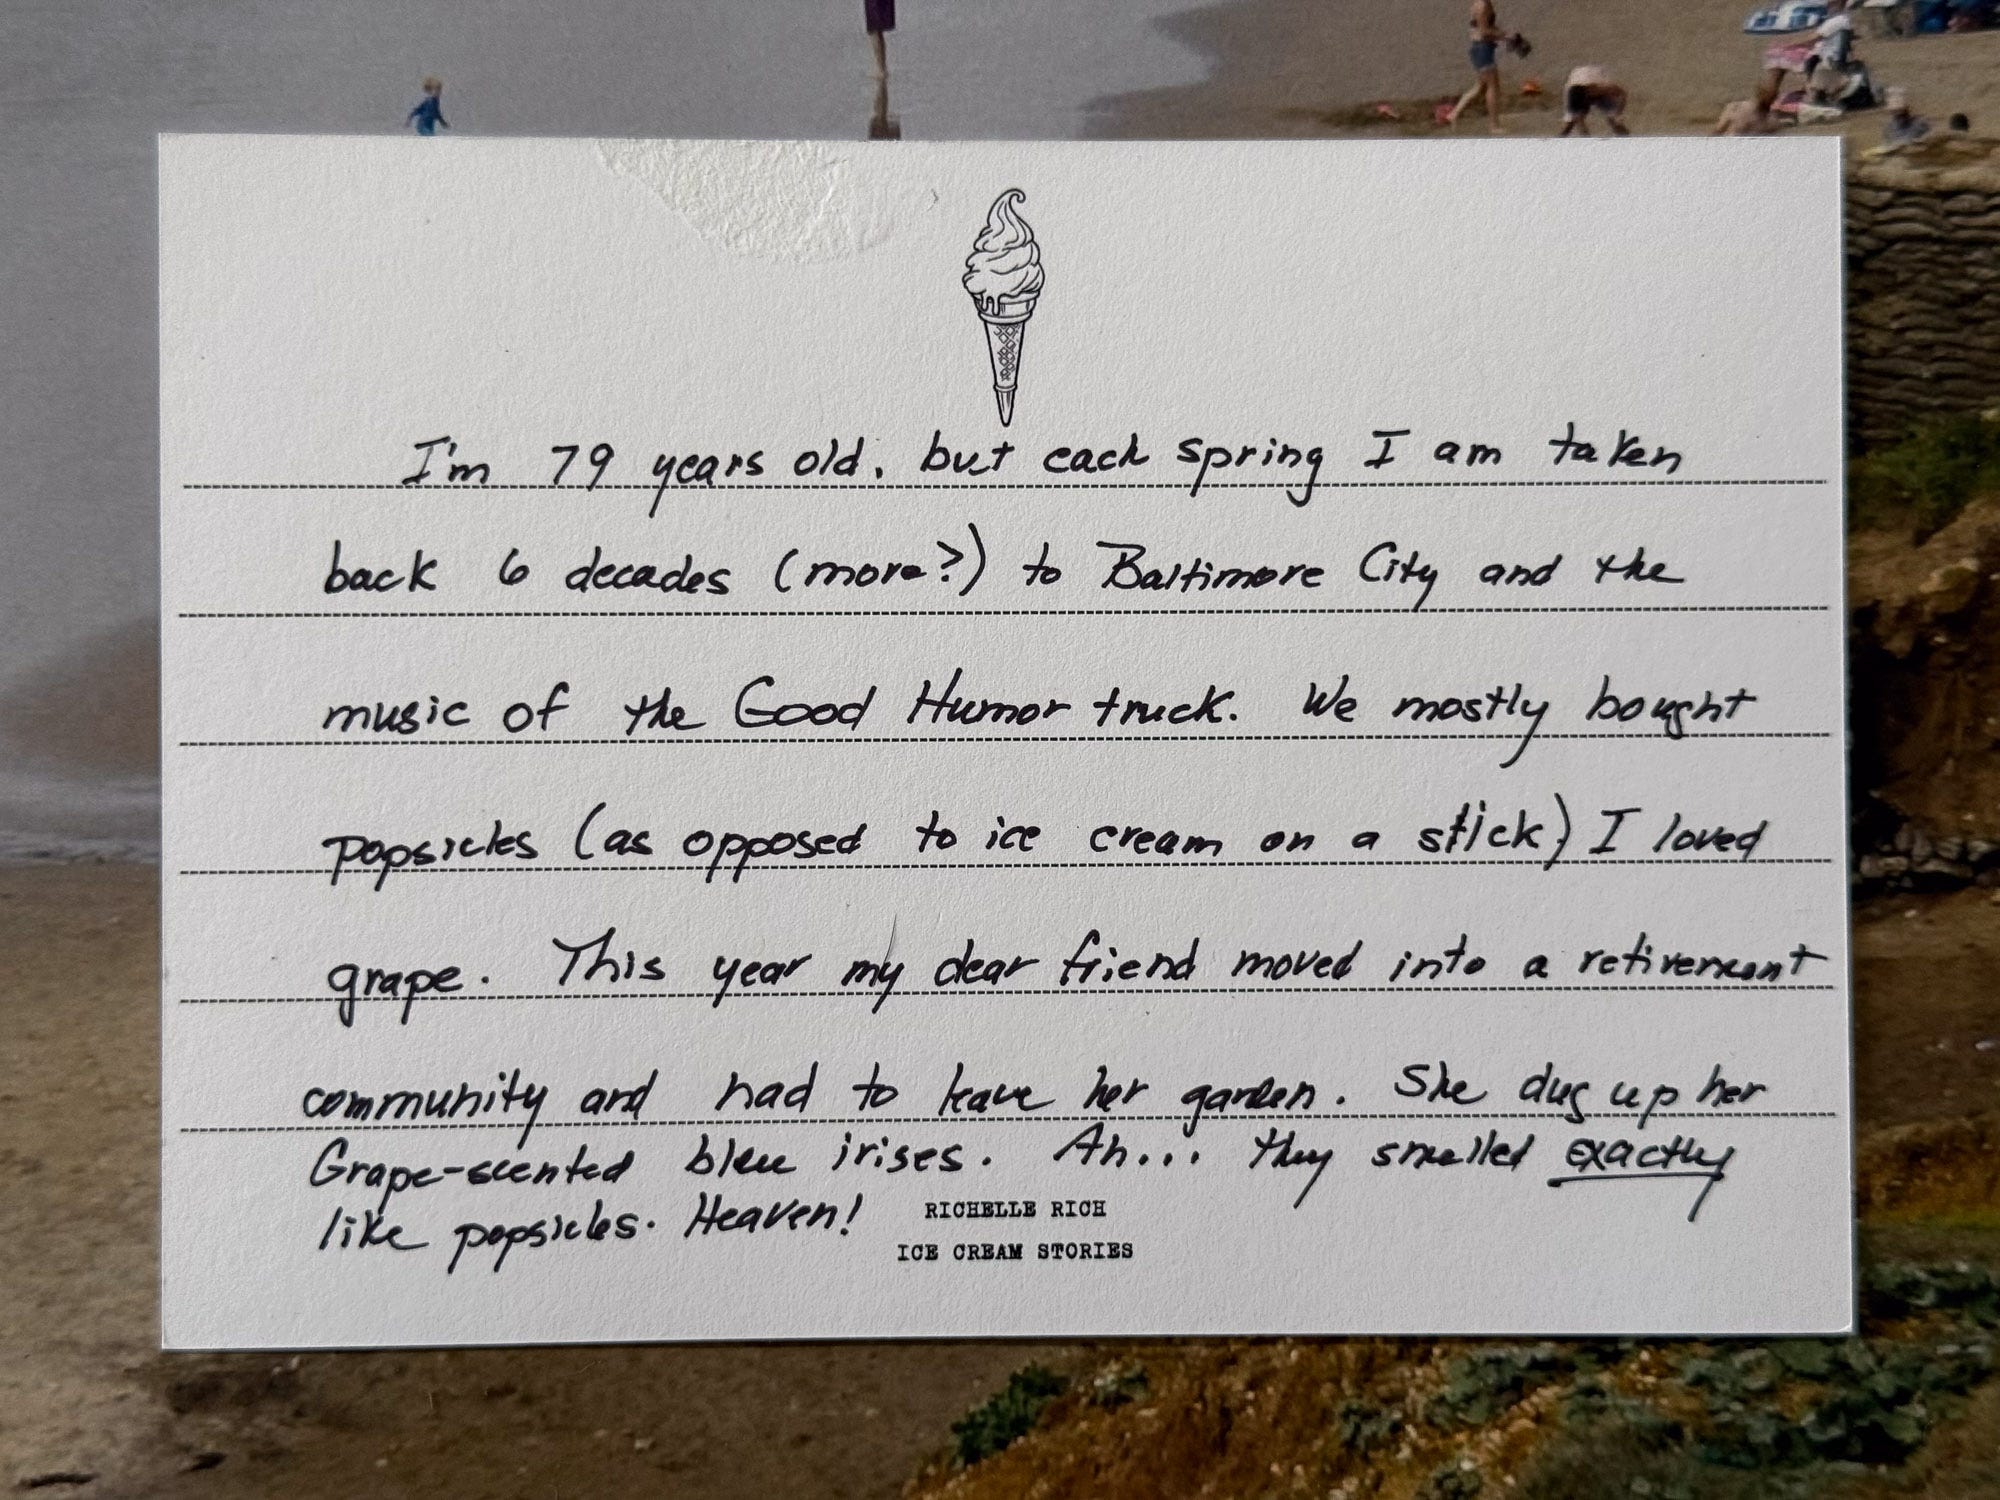 I'm 79 years old, but each spring I am taken
back 6 decades (more?) to Baltimore City and the
music of the Good Humor truck. We mostly bought
popsicles (as opposed to ice cream on a stick) I loved
grape. This year my dear friend moved into a retirement
community and had to leave her garden. She dug up her
Grape-scented blue irises. Ah... they smelled exactly
like popsicles. Heaven!
RICHELLE RICH
ICE CREAM STORIES